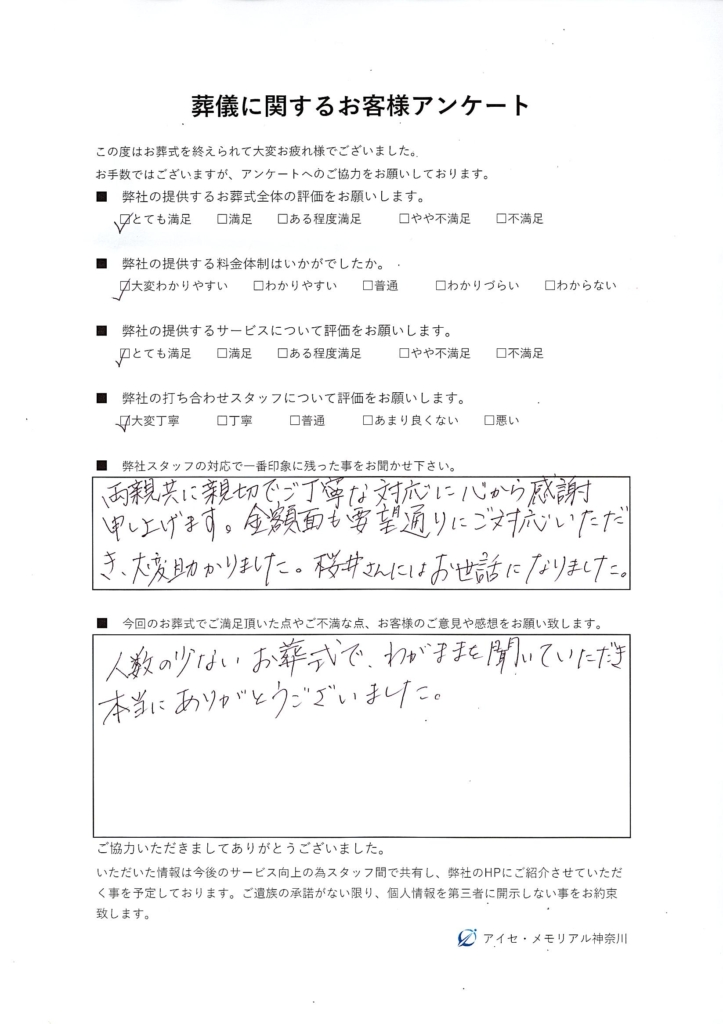 葬儀に関するお客様アンケート
この度はお葬式を終えられて大変お疲れ様でございました。
お手数ではございますが、アンケートへのご協力をお願いしております。
■ 弊社の提供するお葬式全体の評価をお願いします。
☑とても満足 □満足 □ある程度満足 □やや不満足 □不満足
■ 弊社の提供する料金体制はいかがでしたか。
☑大変わかりやすい □わかりやすい □普通 □わかりづらい □わからない
■ 弊社の提供するサービスについて評価をお願いします。
☑とても満足 □満足 □ある程度満足 □やや不満足 □不満足
■ 弊社の打ち合わせスタッフについて評価をお願いします。
☑大変丁寧 □丁寧 □普通 □あまり良くない □悪い
■ 弊社スタッフの対応で一番印象に残った事をお聞かせ下さい。
両親共に親切でご丁寧な対応に心から感謝
申し上げます。金額面も要望通りにご対応いただ
き、大変助かりました。桜井さんにはお世話になりました。
■ 今回のお葬式でご満足頂いた点やご不満な点、お客様のご意見や感想をお願い致します。
人数の少ないお葬式で、わがままを聞いていただき
本当にありがとうございました。
ご協力いただきましてありがとうございました。
いただいた情報は今後のサービス向上の為スタッフ間で共有し、弊社のHPにご紹介させていただ
く事を予定しております。ご遺族の承諾がない限り、個人情報を第三者に開示しない事をお約束
致します。
アイセ・メモリアル神奈川